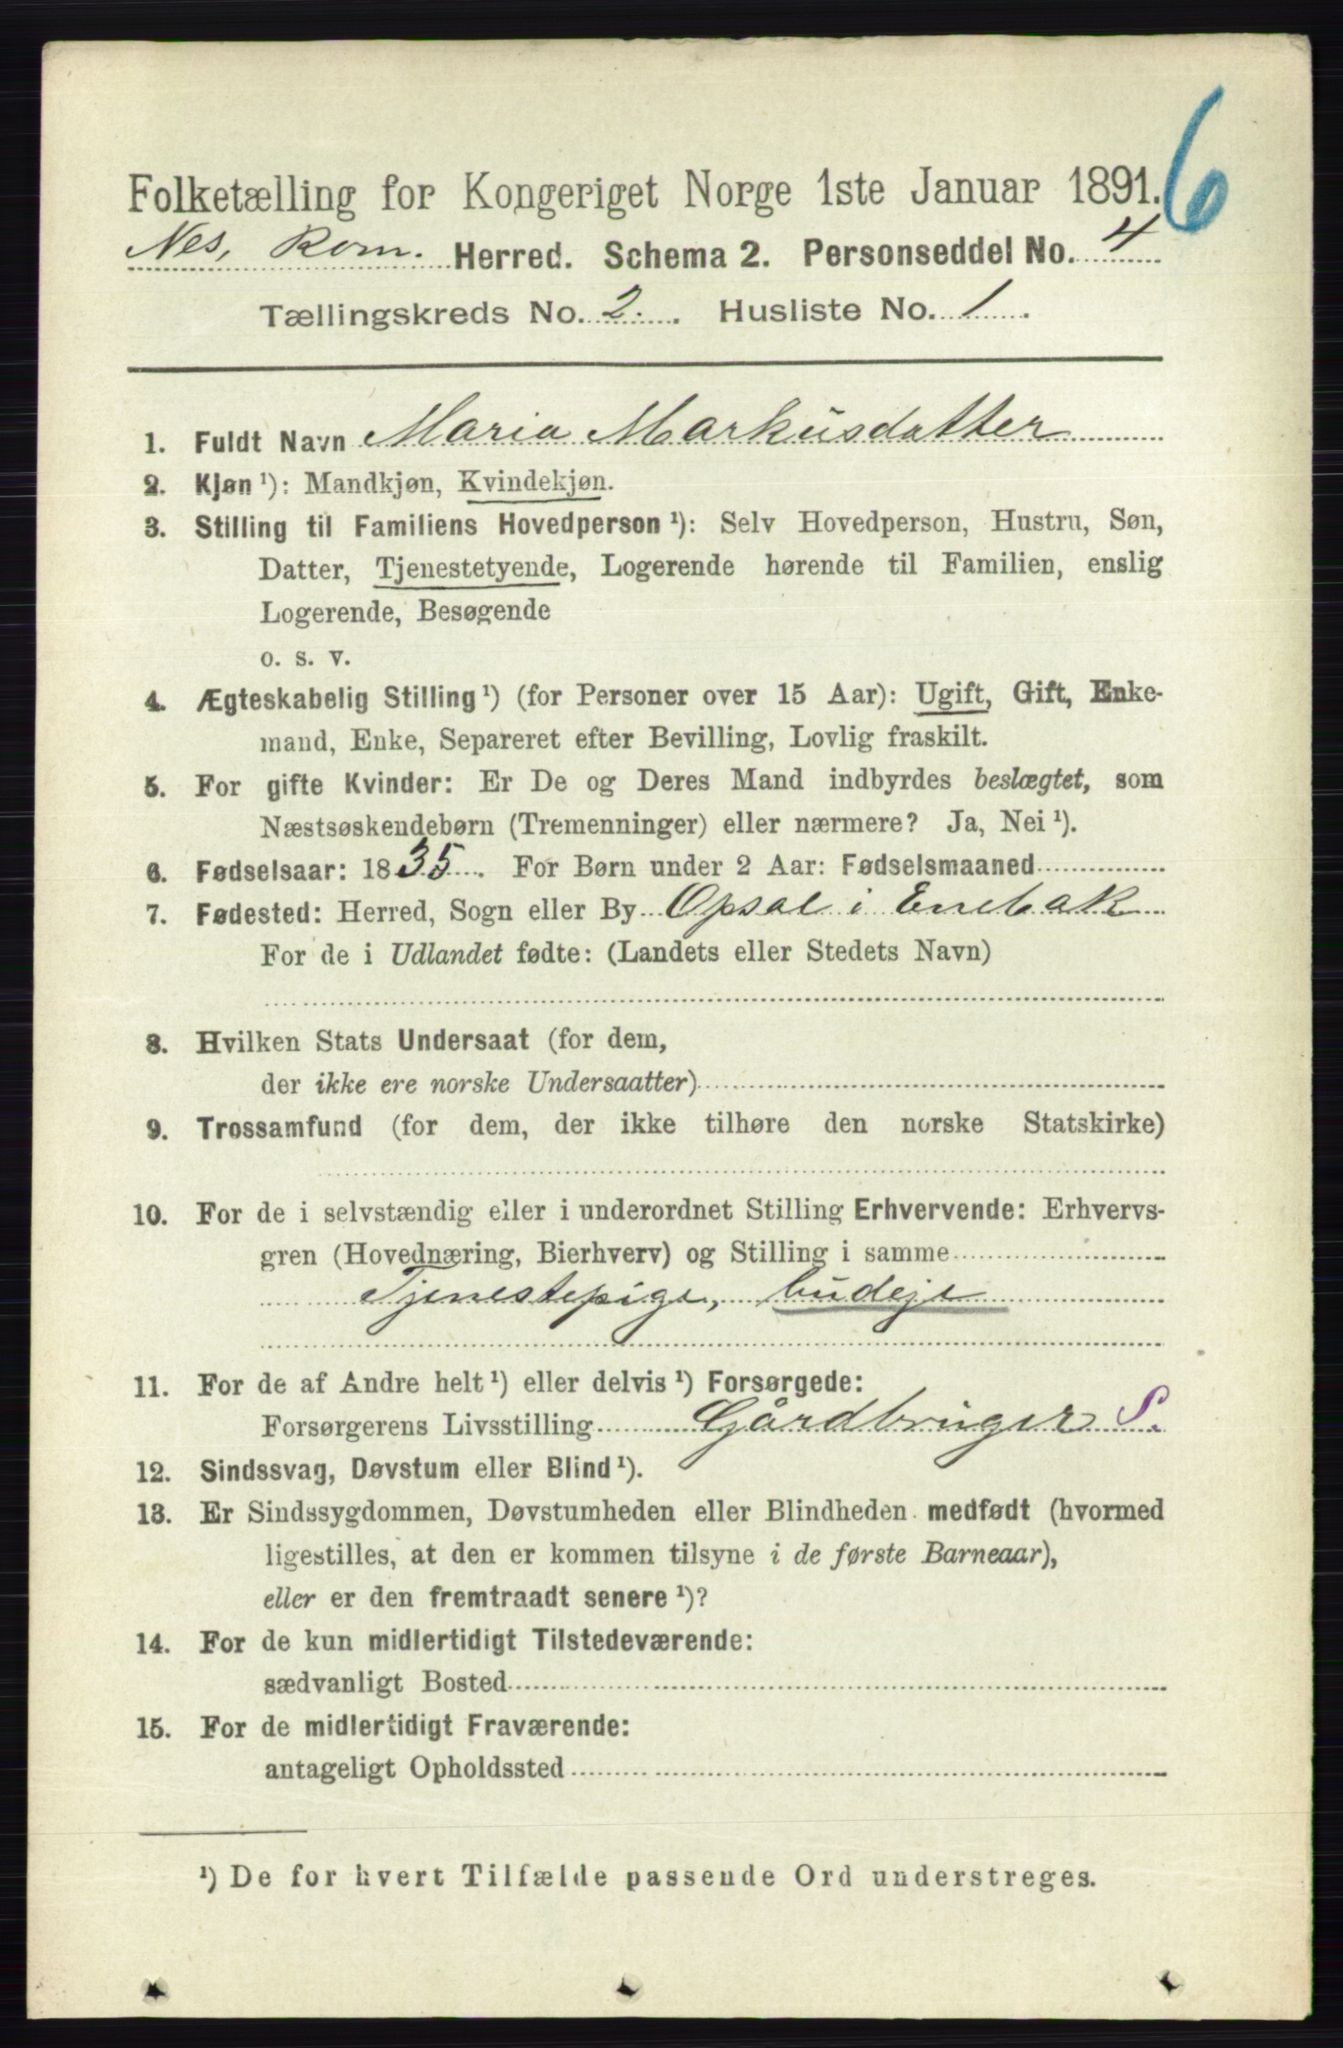 6
Folketælling for Kongeriget Norge 1ste Januar 1891.
Nes, Rom. Herred. Schema 2. Personseddel No. 4
Tællingskreds No. 2. Husliste No. 1.
1. Fuldt Navn Maria Markusdatter
2. Kjøn ¹): Mandkjøn, Kvindekjøn.
3. Stilling til Familiens Hovedperson ¹): Selv Hovedperson, Hustru, Søn,
Datter, Tjenestetyende, Logerende hørende til Familien, enslig
Logerende, Besøgende
o. s. v.
4. Ægteskabelig Stilling ¹) (for Personer over 15 Aar): Ugift, Gift, Enke-
mand, Enke, Separeret efter Bevilling, Lovlig fraskilt.
5. For gifte Kvinder: Er De og Deres Mand indbyrdes beslægtet, som
Næstsøskendebørn (Tremenninger) eller nærmere? Ja, Nei ¹).
6. Fødselsaar: 1835. For Børn under 2 Aar: Fødselsmaaned
7. Fødested: Herred, Sogn eller By Opsal i Enebak
For de i Udlandet fødte: (Landets eller Stedets Navn)
8. Hvilken Stats Undersaat (for dem,
der ikke ere norske Undersaatter)
9. Trossamfund (for dem, der ikke tilhøre den norske Statskirke)
10. For de i selvstændig eller i underordnet Stilling Erhvervende: Erhvervs-
gren (Hovednæring, Bierhverv) og Stilling i samme
Tjenestepige, budeje
11. For de af Andre helt ¹) eller delvis ¹) Forsørgede:
Forsørgerens Livsstilling Gårdbruger S.
12. Sindssvag, Døvstum eller Blind ¹).
13. Er Sindssygdommen, Døvstumheden eller Blindheden medfødt (hvormed
ligestilles, at den er kommen tilsyne i de første Barneaar),
eller er den fremtraadt senere ¹)?
14. For de kun midlertidigt Tilstedeværende:
sædvanligt Bosted
15. For de midlertidigt Fraværende:
antageligt Opholdssted
¹) De for hvert Tilfælde passende Ord understreges.